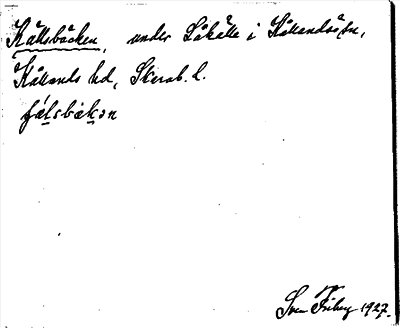 Källsbäcken, under Läkälle i Kållandsö sn,
Kållands hd, Skarab. l.
ɟälsbäkən
Sven Friberg 1927.